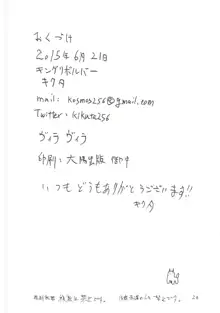 おくづけ
2015年6月21日
キングリボルバー
キクタ
mail: kosmos256@gmail.com
Twitter: kikuta256
ヴィラ ヴィラ
印刷: 大陽出版 御中
いつも どうもありがとうございます!!
キクタ
無断転載 複製は禁止です。